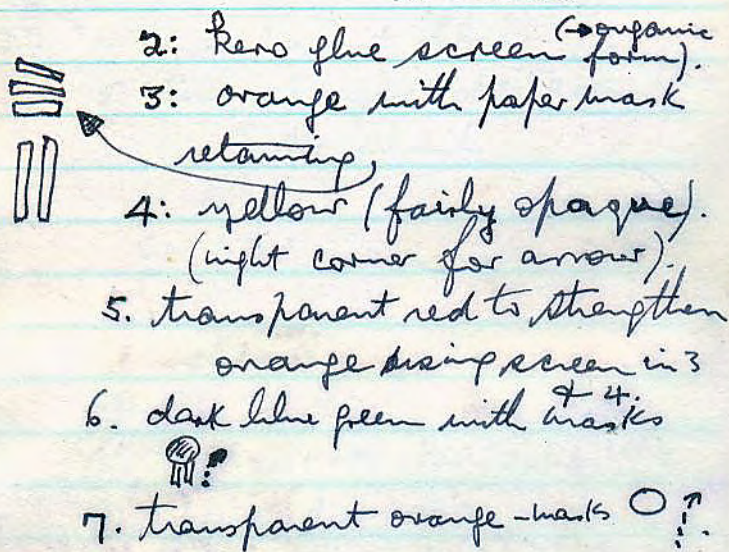 2: Kero glue screen (→organic form).
3: orange with paper mask
retaining,
4: yellow (fairly opaque).
(right corner for arrow).
5. transparent red to strengthen
orange using screen in 3
& 4.
6. dark blue green with masks
7. transparent orange - masks